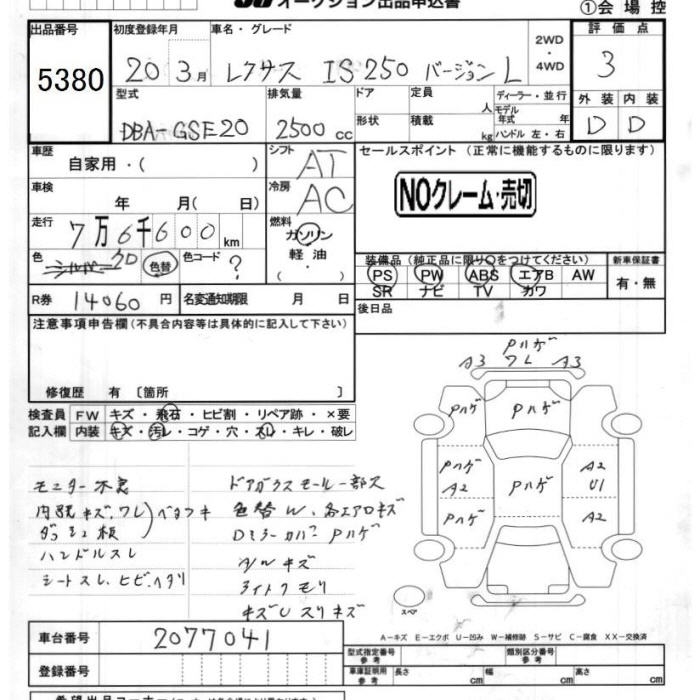 オークション出品申込書
①会 場 控
出品番号 初度登録年月 車名・グレード 2WD ・ 4WD 評価点
5380 20 3月 レクサス IS250 バージョンL 3
型式 排気量 ドア 定員 人 ディーラー・並行 外装 内装
DBA-GSE20 2500cc 形状 積載 kg モデル年式 年 ハンドル 左・右 D D
車歴 自家用・( ) シフト AT セールスポイント (正常に機能するものに限ります)
車検 年 月( 日) 冷房 AC NOクレーム・売切
走行 7万6千600km 燃料 ガソリン 軽油 ・( )
色 シルバー クロ 色替 色コード ? 装備品 (純正品に限り○をつけてください) 新車保証書
PS PW ABS エアB AW 有・無
SR ナビ TV カワ
R券 14060円 名変通知期限 月 日 後日品
注意事項申告欄(不具合内容等は具体的に記入して下さい)
修復歴 有 〔箇所 〕
検査員 FW キズ・飛石・ヒビ割・リペア跡・×要
記入欄 内装 キズ・汚レ・コゲ・穴・スレ・キレ・破レ
Pハゲ
A3 ワレ A3
Pハゲ Pハゲ
Pハゲ A2 Pハゲ A2 U1
Pハゲ A2
スペア
モニター不良
内張キズ、ワレ
ダッシュ板
ベタツキ
ハンドルスレ
シートスレ、ヒビ、ヘタリ
ドアガラスモール一部欠
色替W、各エアロキズ
Dミラーカバー Pハゲ
アルミキズ
ライトクモリ
キズUスリキズ
A-キズ E-エクボ U-凹み W-補修跡 S-サビ C-腐食 XX-交換済
車台番号 2077041
登録番号
型式指定番号 参考 類別区分番号 参考
車庫証明用 参考 長さ cm 幅 cm 高さ cm